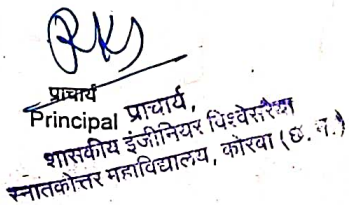 प्राचार्य
Principal प्राचार्य,
शासकीय इंजीनियर विश्वेसरैया
स्नातकोत्तर महाविद्यालय, कोरबा (छ. ग.)